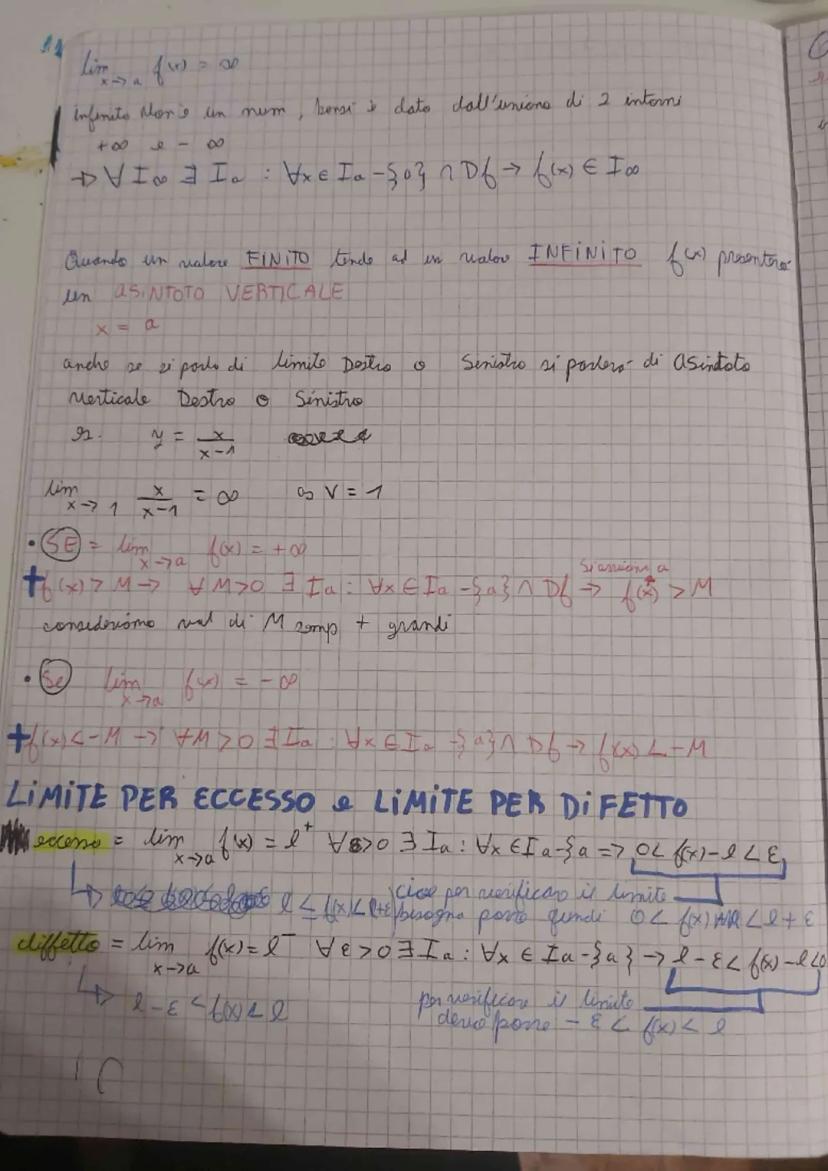 lim x→a f(x) = ∞
infinito Non è un num, bensì è dato dall'unione di 2 intorni
+∞ e - ∞
→ ∀ I∞ ∃ Ia : ∀x ∈ Ia -{a} ∩ Df → f(x) ∈ I∞
Quando un valore FINITO tende ad un valore INFINITO f(x) presenterà
un ASINTOTO VERTICALE
x = a
anche se si parla di limite Destro o Sinistro si parlerà di Asintoto
Verticale Destro o Sinistro
es. y = x/(x-1)
lim x→1 x/(x-1) = ∞ as V = 1
• SE = lim x→a f(x) = +∞
+ f(x) > M → ∀ M>0 ∃ Ia : ∀x ∈ Ia -{a} ∩ Df → f(x) > M
consideriamo val di M semp + grandi
• Se lim x→a f(x) = -∞
+ f(x) < -M → ∀M>0 ∃ Ia : ∀x ∈ Ia -{a} ∩ Df → f(x) < -M
LIMITE PER ECCESSO e LIMITE PER DIFETTO
eccesso = lim x→a f(x) = l⁺ ∀ε>0 ∃ Ia : ∀x ∈ Ia-{a => 0< f(x)-l < ε
l ≤ f(x) < l+ε cioè per verificare il limite
bisogna porre quindi 0 < f(x) < l + ε
diffetto = lim x→a f(x) = l⁻ ∀ε>0 ∃ Ia : ∀x ∈ Ia-{a} → l-ε< f(x)-l<0
l-ε < f(x) < l per verificare il limite
devo porre -ε < f(x) < l